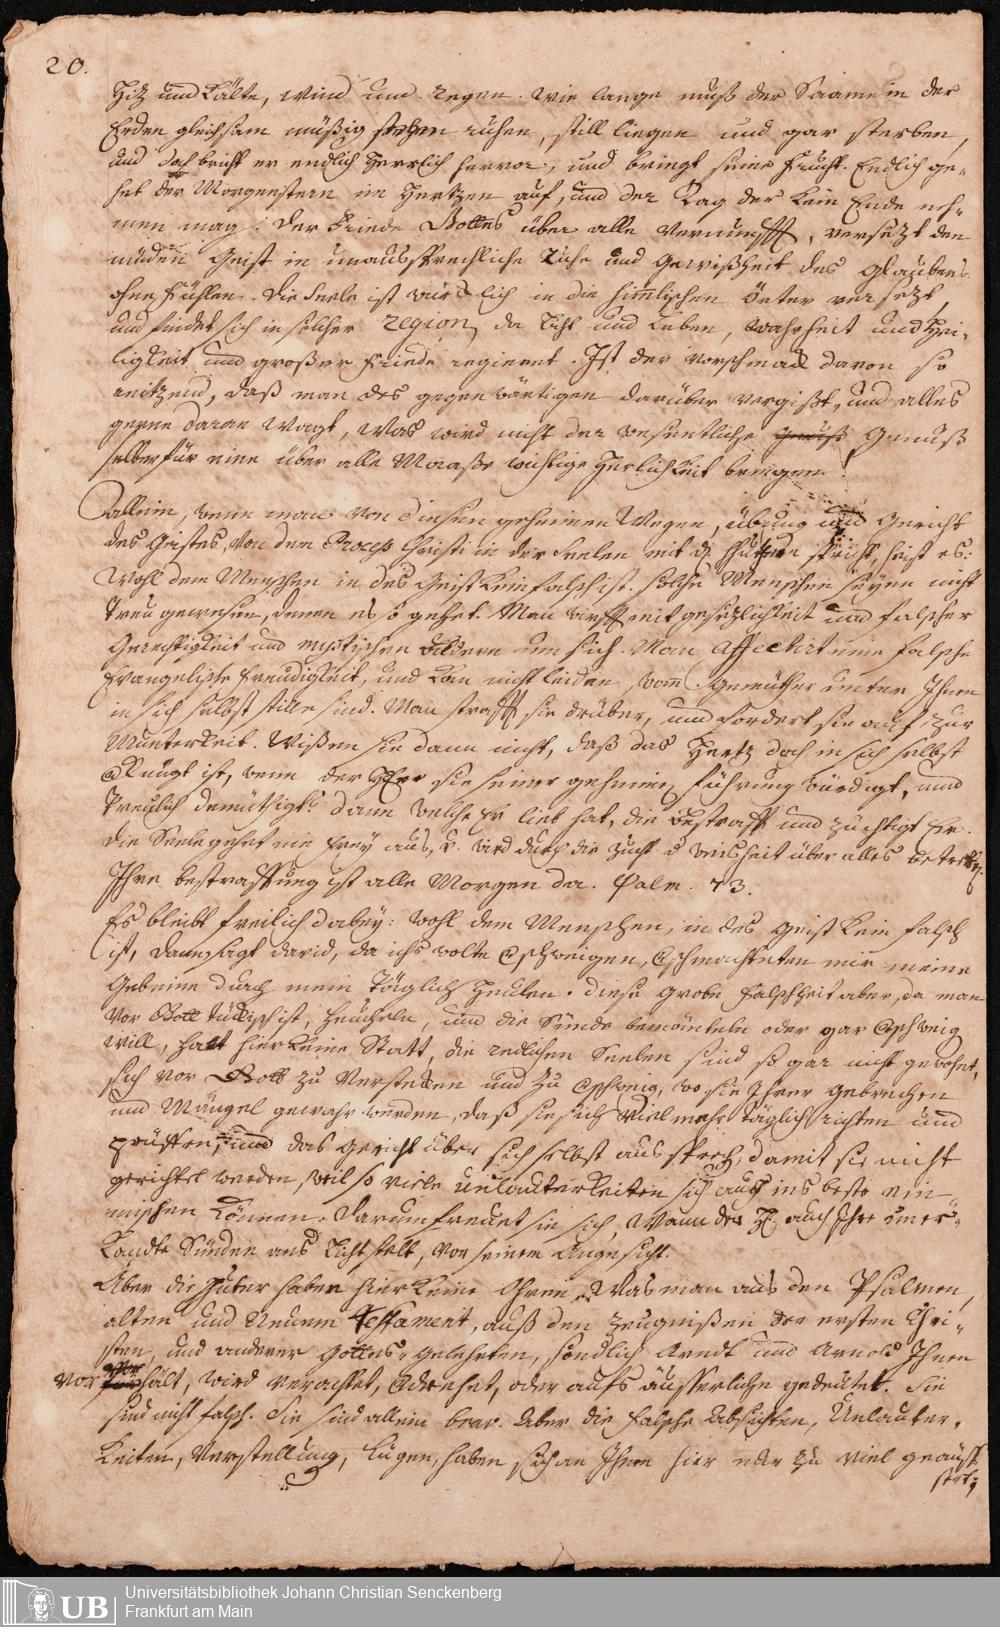 20.
Hitz und Kälte, Wind und Regen. Wie lange muß der Saame in der
Erden gleichsam müßig stehen ruhen, still liegen und gar sterben,
und doch bricht er endlich herrlich hervor, und bringt seine Frucht. Endlich ge-
het der Morgenstern im Hertzen auf, und der Tag der kein Ende neh-
men mag: Der Friede Gottes über alle Vernunfft, versetzt den
müden Geist in unaussprechliche Ruhe und Gewißheit des Glaubens
ohne fühlen. Die Seele ist würcklich in die himmlischen Örter versetzt,
und findet sich in solcher Region, da Licht und Leben, Wahrheit und Hei-
ligkeit und großer Friede regieret. Ist der Vorschmack davon so
reitzend, daß man des gegenwärtigen darüber vergißt, und alles
gerne daran Wagt, Was wird nicht der wesentliche Genuß
selber für eine über alle Maaße wichtige Herrlichkeit bringen!
Allein, wenn man von diesen geheimen Wegen, übung und Gericht
des Geistes, Von dem Proceß Christi in der Seelen mit spricht, heist es:
Wohl dem Menschen in des Geist kein falsch ist. solche Menschen seyen nicht
treu gewesen, denen es so gehet. Man wirfft mit gesetzlichkeit und falscher
Gerechtigkeit und mystischen Bildern um sich. Man affectirt eine falsche
Evangelische Freudigkeit, und kan nicht leiden, wann Gemüther unter Ihnen
in sich selbst stille sind. Man strafft sie drüber, und fordert sie auf zur
Munterkeit. Wißen sie dann nicht, daß das Hertz doch in sich selbst
vergnügt ist, wenn der HErr sie seiner geheimen führung würdigt, und
treulich demüthigt? dann welche Er lieb hat, die bestrafft und züchtigt Er.
Die Seele gehet nie frey aus, u. wird durch die Zucht d Weisheit über alles
Ihre bestraffung ist alle Morgen da. Psalm. 73.
Es bleibt freilich dabey: wohl dem Menschen, in des Geist kein falsch
ist, dann sagt David, da ichs wolte verschweigen, verschmachteten mir meine
Gebeine durch mein täglich Heulen. diese grobe falschheit aber, da man
vor Gott tückisch ist, heucheln, und die Sünde bemänteln oder gar verschweig
will, hatt hier keine Statt, die redlichen Seelen sind so gar nicht gewohnt,
sich vor Gott zu verstecken und zu verschweig, wo sie Ihrer Gebrechen
und Mängel gewahr werden, daß sie sich vielmehr täglich richten und
prüffen, und das Gericht über sich selbst aussprech, damit sie nicht
gerichtet werden, weil so viele unlauterkeiten sich auch ins beste ein-
mischen können. Darum freuet sie sich, Wann der Hl. auch Ihre uner-
kandte Sünden ans Licht stelt, vor seinem Angesicht.
Aber die Hüter haben hier keine Ohren. Was man aus den Psalmen,
alten und Neuem Testament, auß den Zeugnißen der ersten Chri-
sten, und anderer Gottes-gelehrten, sondlich Arndt und Arnold Ihnen
vorhält, wird verachtet, verdrehet, oder aufs äusserliche gedeutet. Sie
sind nicht falsch. Sie sind allein brav. Aber die falsche Absichten, Unlauter-
keiten, Verstellung, Lügen, haben sich an Ihnen hier nur zu viel geäuß
sert;
UB
Universitätsbibliothek Johann Christian Senckenberg
Frankfurt am Main